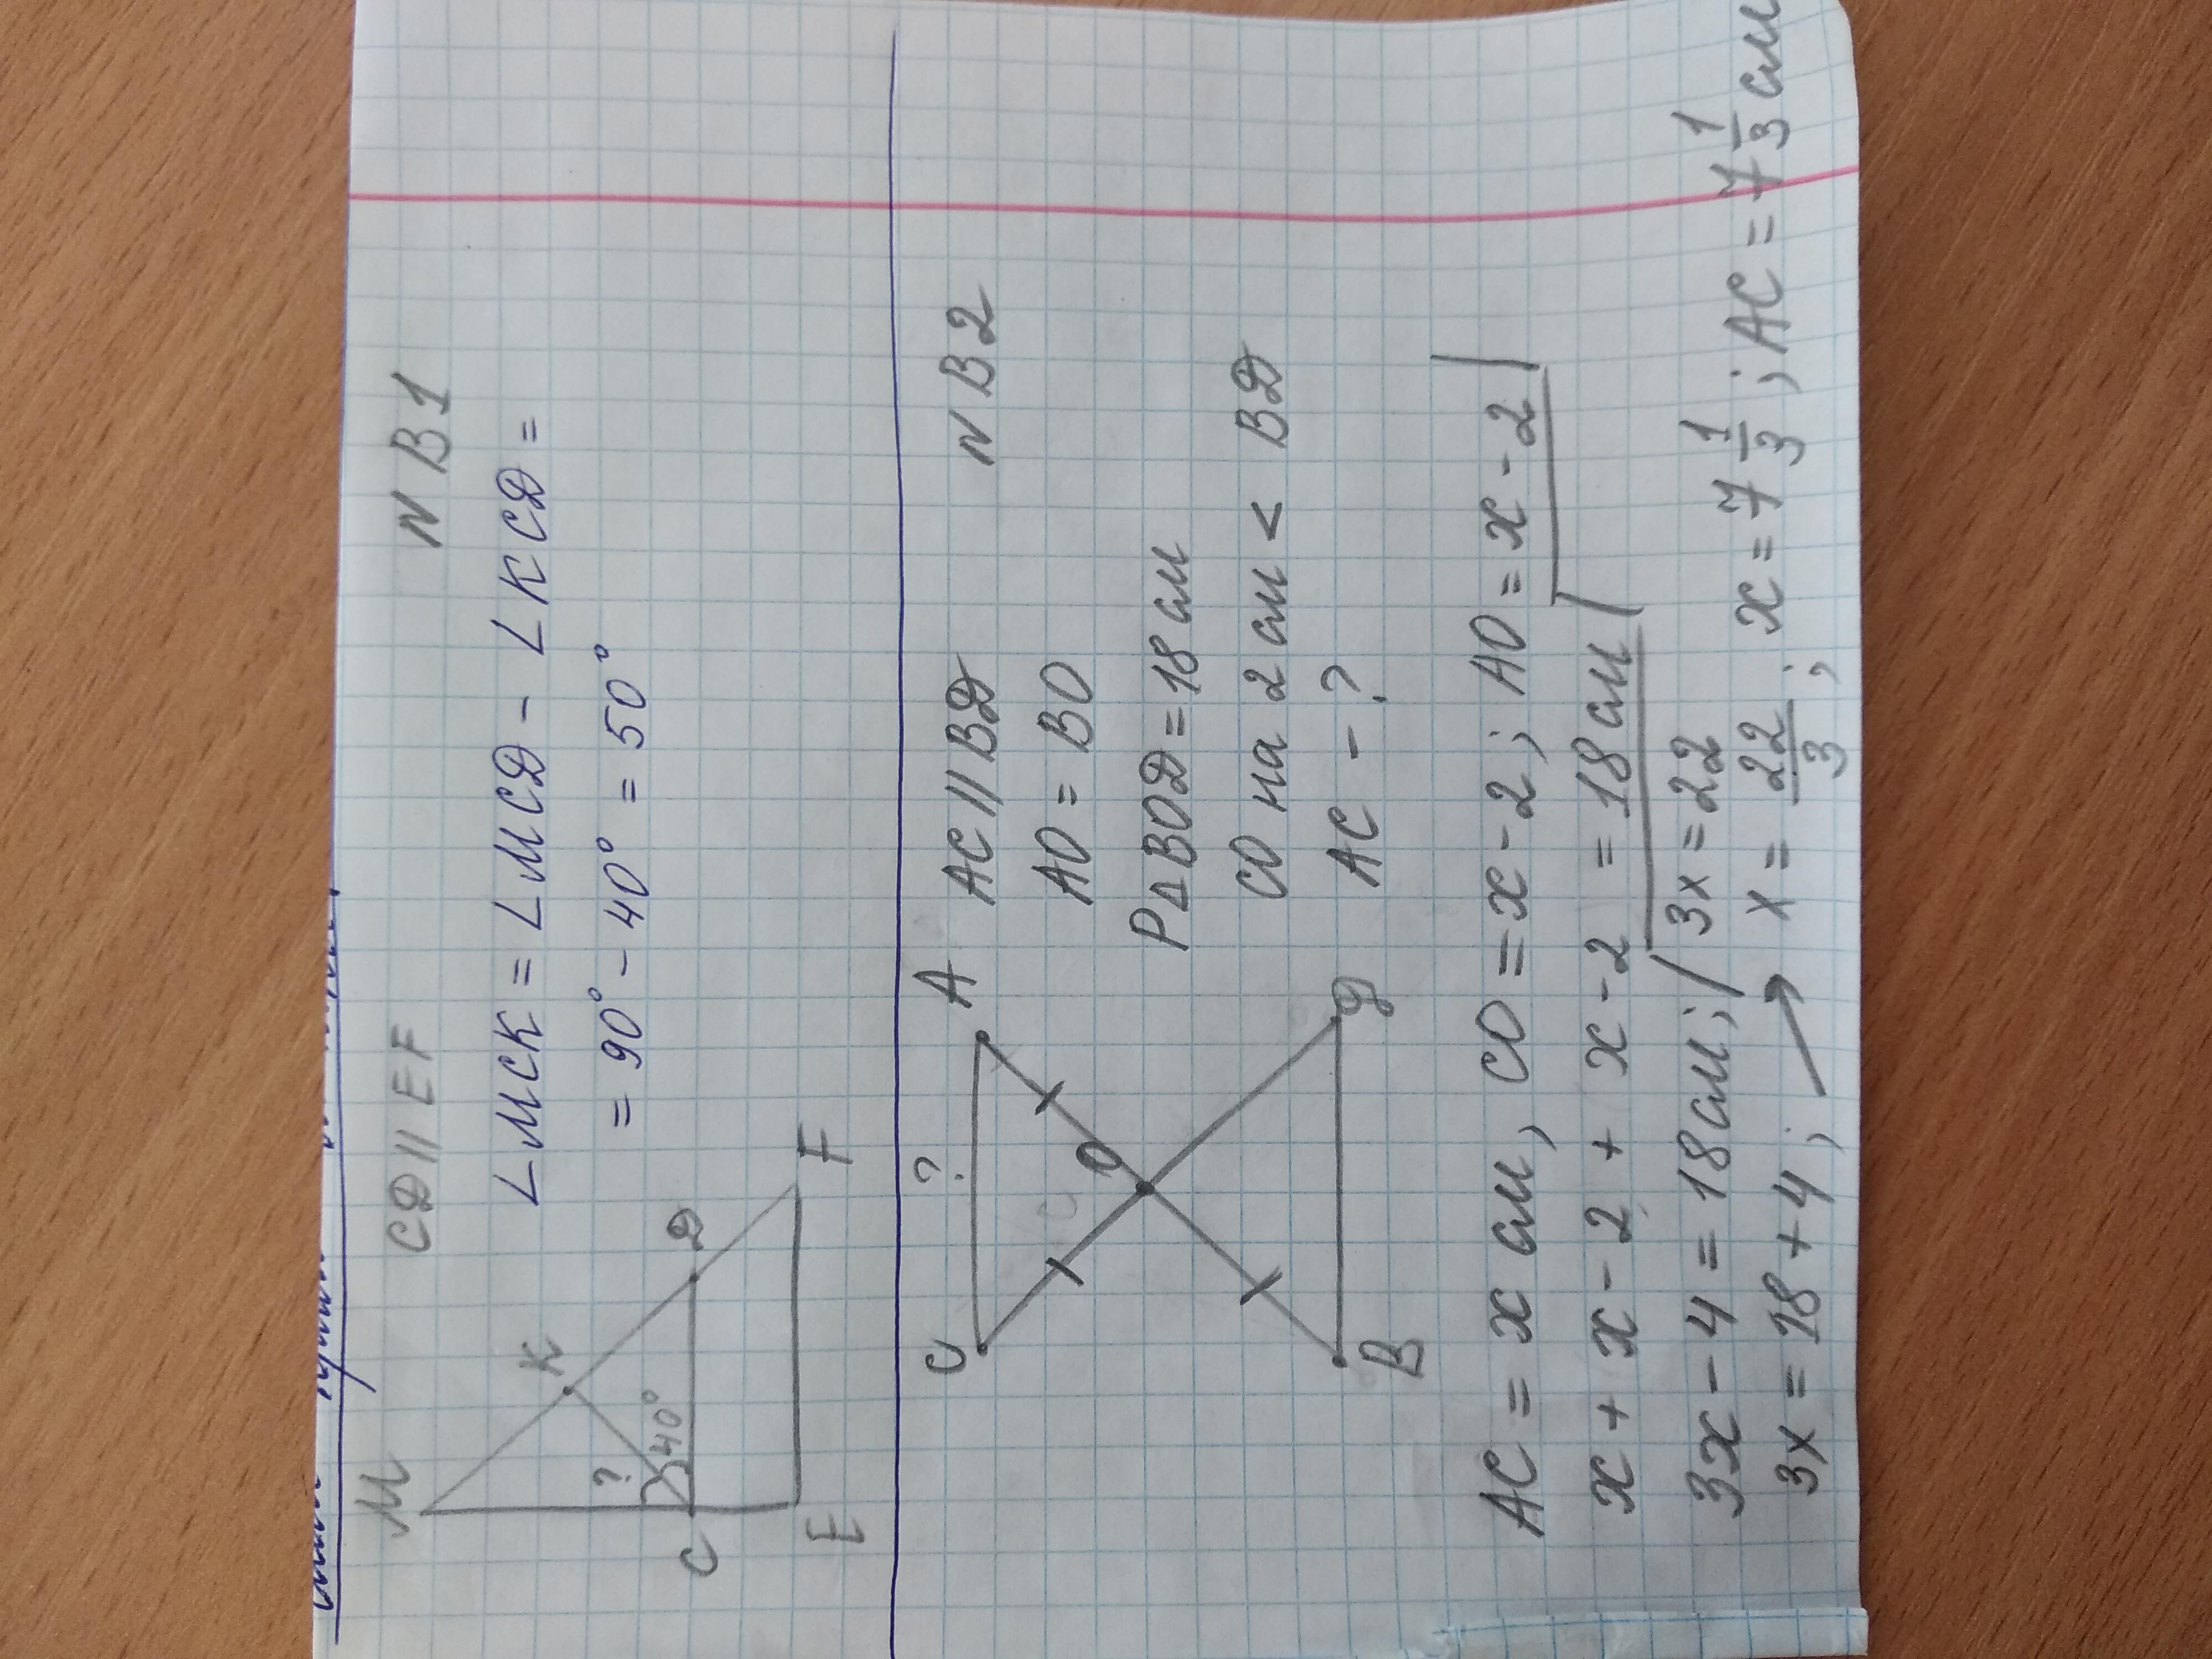 N B1
CD || EF
M
K
?
40°
C
D
E
F
∠MCK = ∠MCD - ∠KCD =
= 90° - 40° = 50°
N B2
C
?
A
O
B
D
AC || BD
AO = BO
P∆BOD = 18 см
CO на 2 см < BD
AC - ?
AC = x см, CO = x - 2; AO = x - 2
x + x - 2 + x - 2 = 18 см
3x - 4 = 18 см; 3x = 22
3x = 18 + 4; → x = 22/3; x = 7 1/3; AC = 7 1/3 см